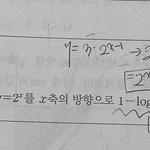 y = 3·2^{x-1} →
= 2^x
y=2ˣ를 x축의 방향으로 1−log